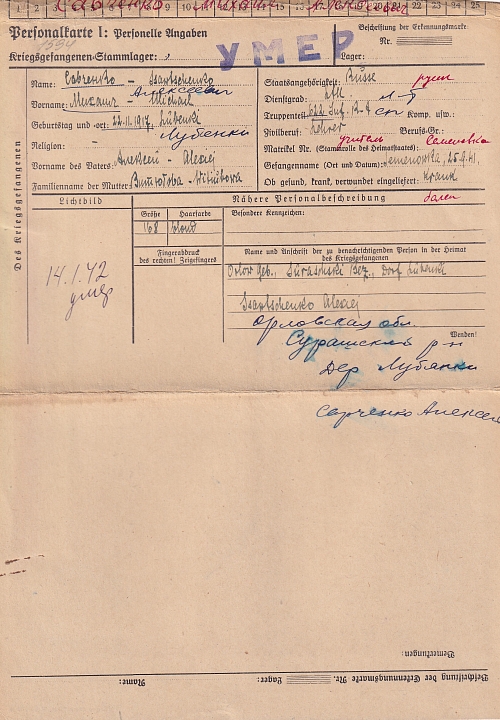 1 2 3 4 5 6 7 8 9 10 11 12 13 14 15 16 17 18 19 20 21 22 23 24 25
Савченко Михаил Алексеевич
Personalkarte I: Personelle Angaben
1594
УМЕР
Beschriftung der Erkennungsmarke
Nr.
Kriegsgefangenen-Stammlager:
Lager:
Des Kriegsgefangenen
Name: Савченко - Ssawtschenko
Алексеевич
Vorname: Михаил - Michael
Geburtstag und -ort: 22.11.1917, Lubenki
Лубенки
Religion: -
Vorname des Vaters: Алексей - Alexej
Familienname der Mutter:
Staatsangehörigkeit: Russe русск
Dienstgrad:
Truppenteil: 622 Inf. R. сп Komp. usw.:
Zivilberuf: Lehrer Berufs-Gr.:
учитель Семеновка
Matrikel Nr. (Stammrolle des Heimatstaates):
Gefangennahme (Ort und Datum): Semenowka, 25.9.41.
Ob gesund, krank, verwundet eingeliefert: krank
болен
Lichtbild
14.1.42
умер
Nähere Personalbeschreibung
Größe Haarfarbe Besondere Kennzeichen:
168 blond
Fingerabdruck
des rechten! Zeigefingers
Name und Anschrift der zu benachrichtigenden Person in der Heimat
des Kriegsgefangenen
Orlow Geb., Suraschski Bez., Dorf Lubenki
Ssawtschenko Alexej
Орловская обл.
Wenden!
Сурашский р-н
Дер Лубянки
Савченко Алексей
Bemerkungen:
Beschriftung der Erkennungsmarke Nr. Lager: Name: